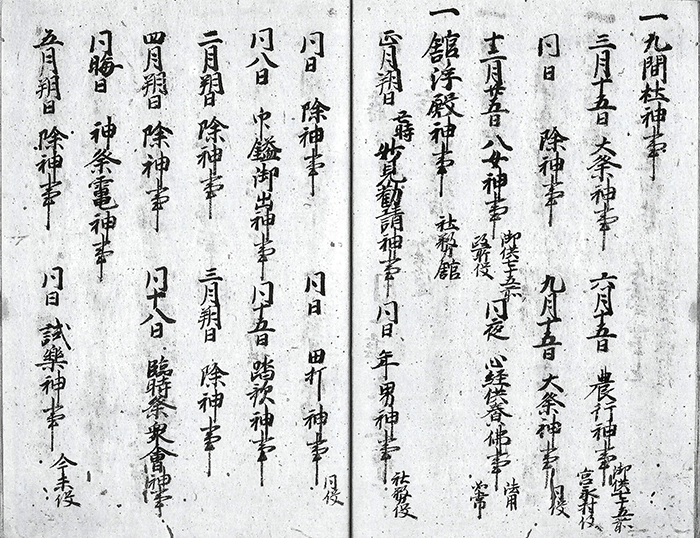 一九間社神事
三月十五日 大祭神事 六月十五日 農行神事 御供七十五前 宮永村役
同日 除神事 九月十五日 大祭神事 同役
十二月廿五日 八女神事 御供七十五前 政所役 同夜 心経供養佛事 法用如常
一舘浮殿神事 社務舘
正月朔日 亥時 妙見勧請神事 同日 年男神事 社務役
同日 除神事 同日 田打神事 同役
同八日 巾鎰御出神事 同十五日 踏歌神事
二月朔日 除神事 三月朔日 除神事
四月朔日 除神事 同十八日 臨時祭衆會神事
同晦日 神祭竃神事
五月朔日 除神事 同日 試樂神事 今未役